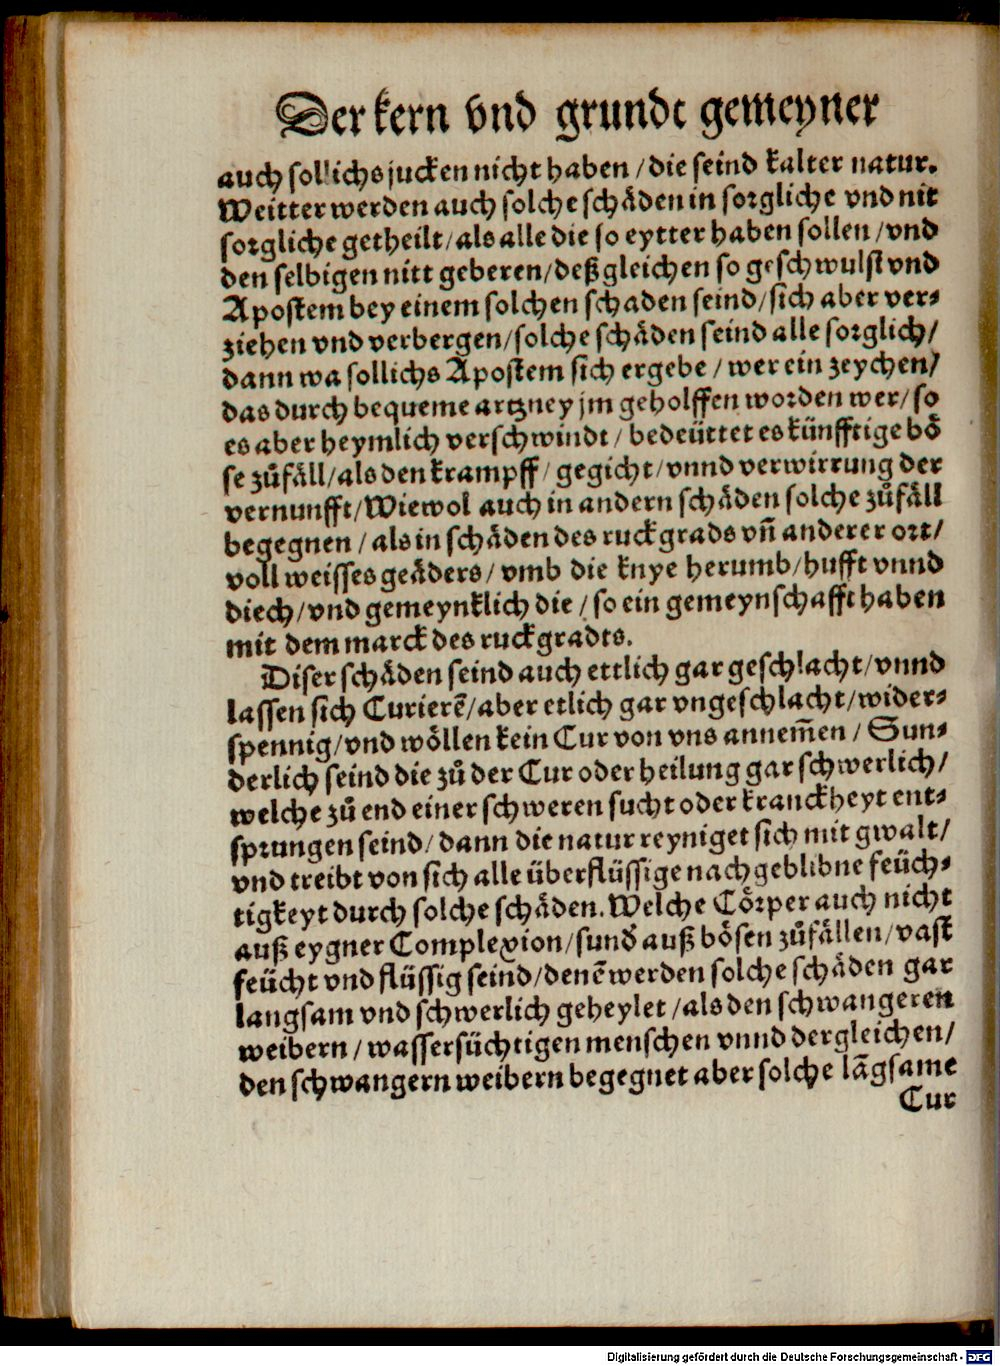 Der kern vnd grundt gemeyner
auch sollichs jucken nicht haben / die seind kalter natur.
Weitter werden auch solche schäden in sorgliche vnd nit
sorgliche getheilt / als alle die so eytter haben sollen / vnd
den selbigen nitt geberen / deßgleichen so geschwulst vnd
Apostem bey einem solchen schaden seind / sich aber ver⸗
ziehen vnd verbergen / solche schäden seind alle sorglich /
dann wa sollichs Apostem sich ergebe / wer ein zeychen /
das durch bequeme artzney jm geholffen worden wer / so
es aber heymlich verschwindt / bedeüttet es künfftige bö
se zůfäll / als den krampff / gegicht / vnnd verwirrung der
vernunfft / Wiewol auch in andern schäden solche zůfäll
begegnen / als in schäden des ruckgrads vñ anderer ort /
voll weisses geäders / vmb die knye herumb / hufft vnnd
diech / vnd gemeynklich die / so ein gemeynschafft haben
mit dem marck des ruckgradts.
Diser schäden seind auch ettlich gar geschlacht / vnnd
lassen sich Curierẽ / aber etlich gar vngeschlacht / wider⸗
spennig / vnd wöllen kein Cur von vns annem̃en / Sun⸗
derlich seind die zů der Cur oder heilung gar schwerlich /
welche zů end einer schweren sucht oder kranckheyt ent⸗
sprungen seind / dann die natur reyniget sich mit gwalt /
vnd treibt von sich alle überflüssige nachgeblibne feüch⸗
tigkeyt durch solche schäden. Welche Cörper auch nicht
auß eygner Complexion / sund̕ auß bösen zůfällen / vast
feücht vnd flüssig seind / denẽ werden solche schäden gar
langsam vnd schwerlich geheylet / als den schwangeren
weibern / wassersüchtigen menschen vnnd dergleichen /
den schwangern weibern begegnet aber solche lãgsame
Cur
Digitalisierung gefördert durch die Deutsche Forschungsgemeinschaft - DFG